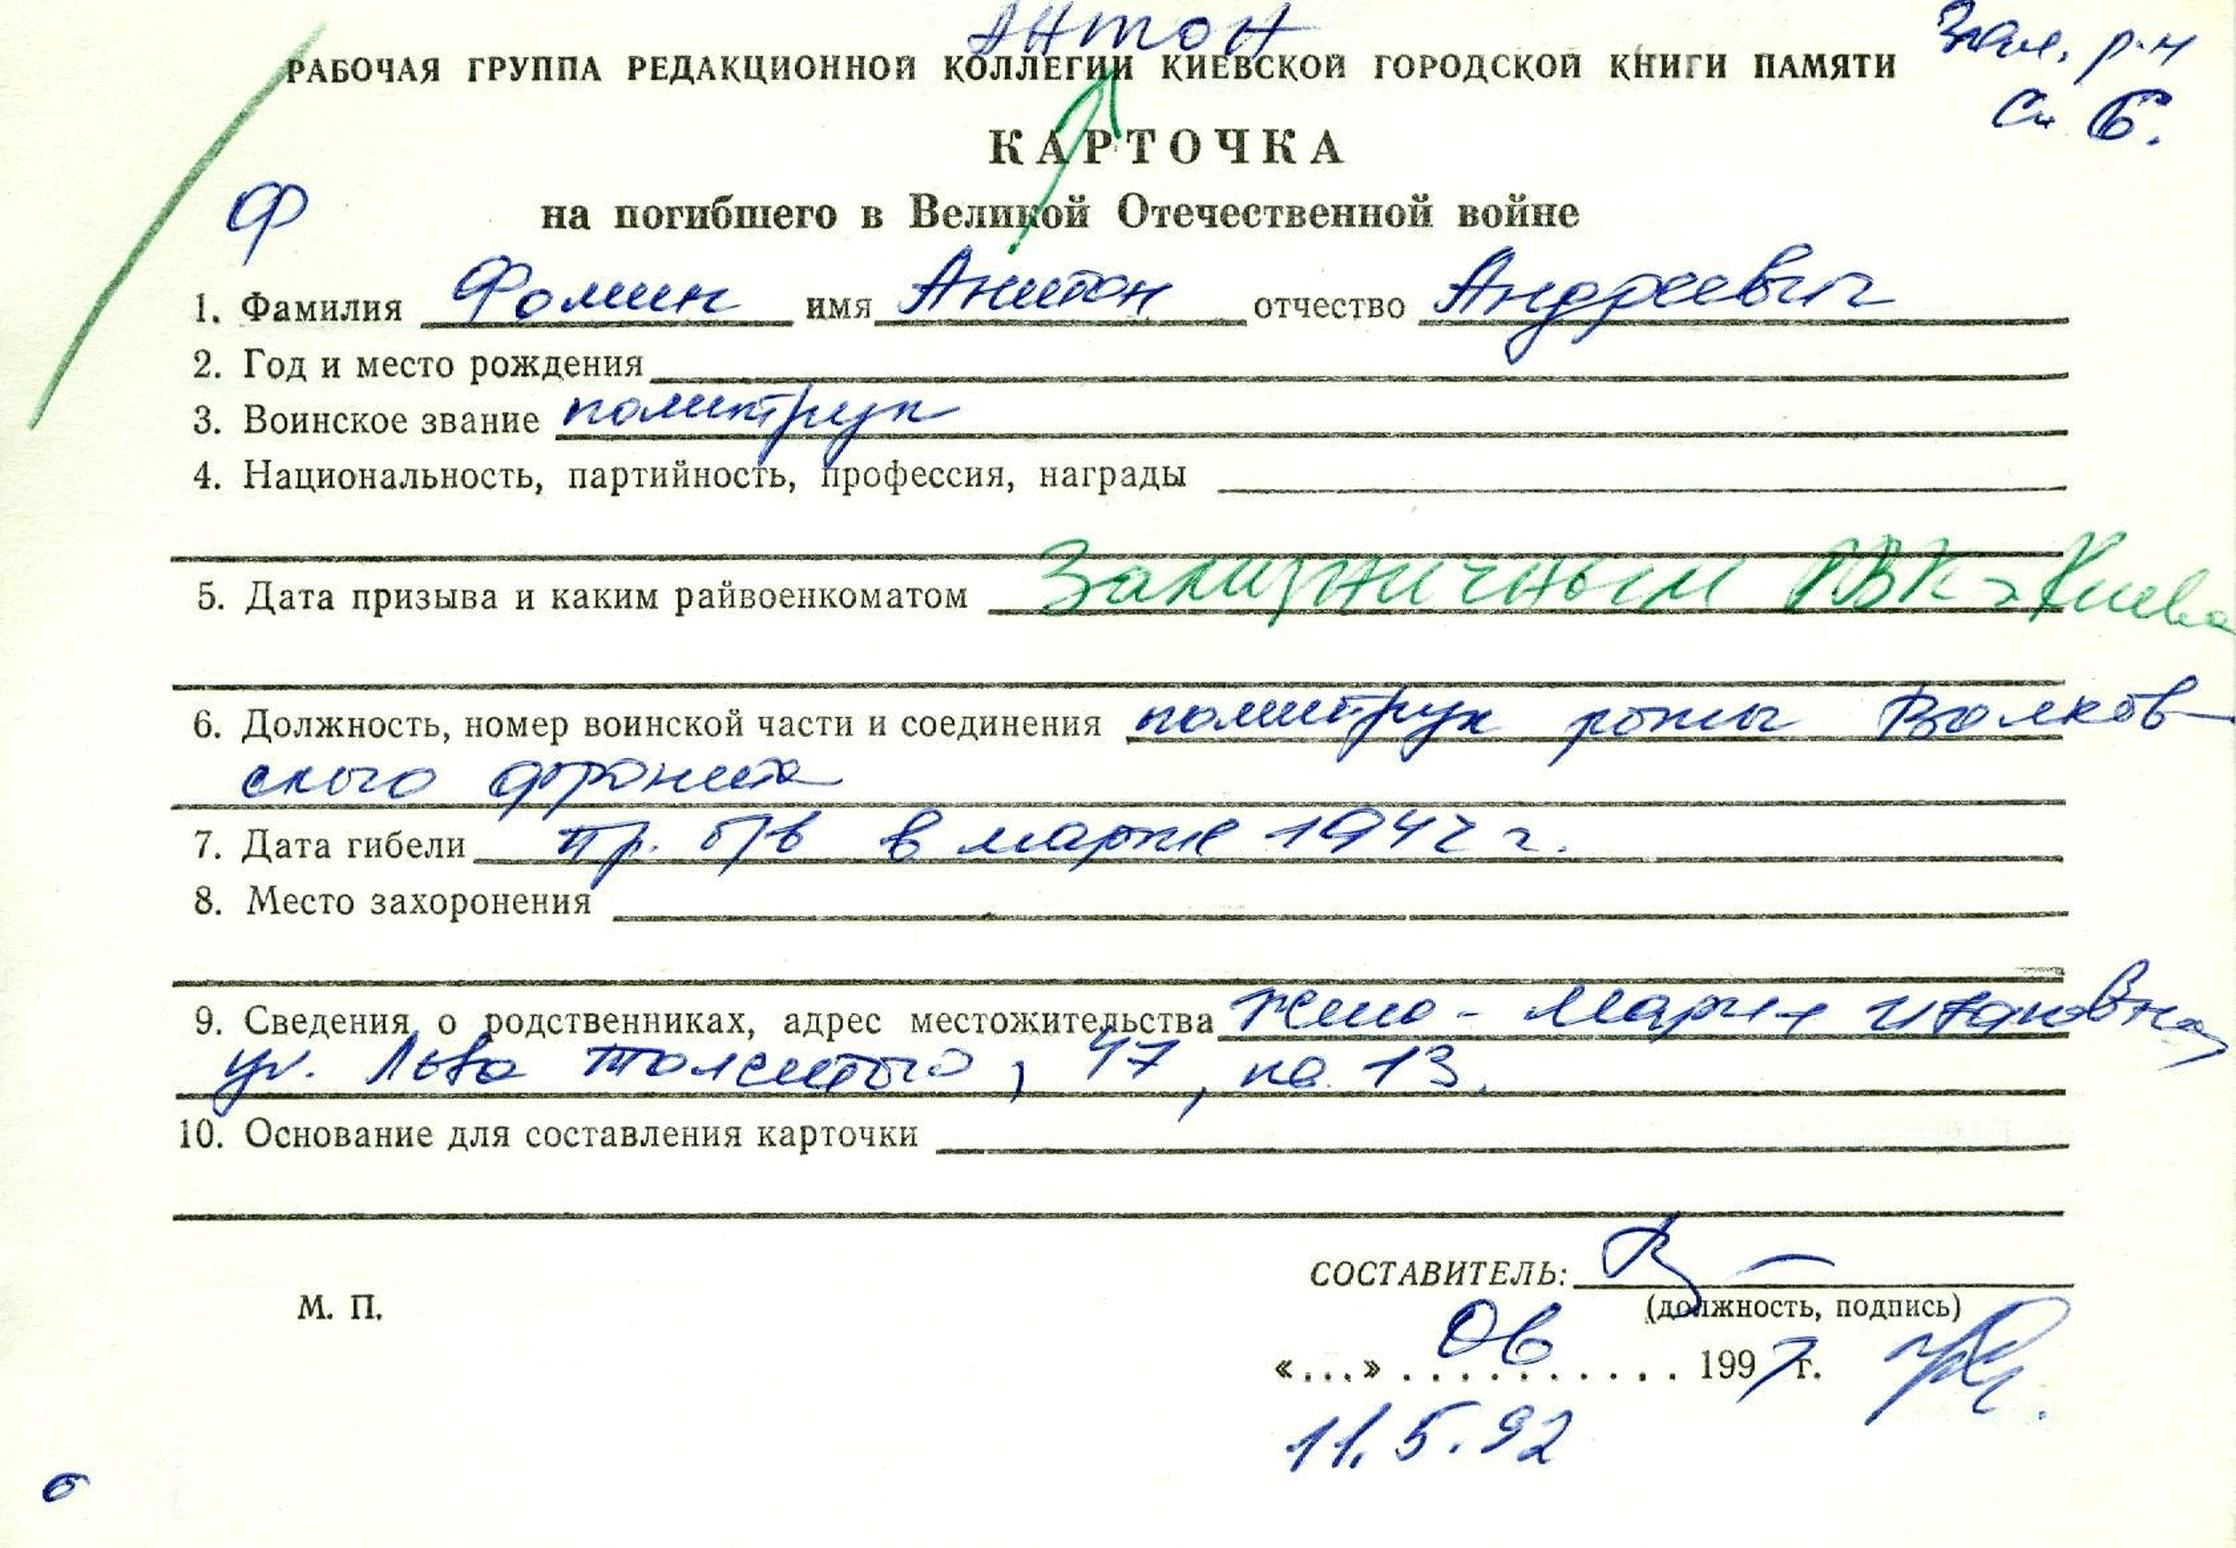 Антон
Зал. р-н
РАБОЧАЯ ГРУППА РЕДАКЦИОННОЙ КОЛЛЕГИИ КИЕВСКОЙ ГОРОДСКОЙ КНИГИ ПАМЯТИ
Сп 6.
КАРТОЧКА
Ф
на погибшего в Великой Отечественной войне
1. Фамилия Фомин имя Антон отчество Андреевич
2. Год и место рождения
3. Воинское звание политрук
4. Национальность, партийность, профессия, награды
5. Дата призыва и каким райвоенкоматом Зализничным РВК г Киева
6. Должность, номер воинской части и соединения политрук роты Волхов-
ского фронта
7. Дата гибели пр. б/в в марте 1942 г.
8. Место захоронения
9. Сведения о родственниках, адрес местожительства жена - Мария Ивановна,
ул. Льва Толстого, 47, кв. 13.
10. Основание для составления карточки
СОСТАВИТЕЛЬ:
(должность, подпись)
М. П.
«...» . . . . . . . . . . 199 г.
11.5.92
б